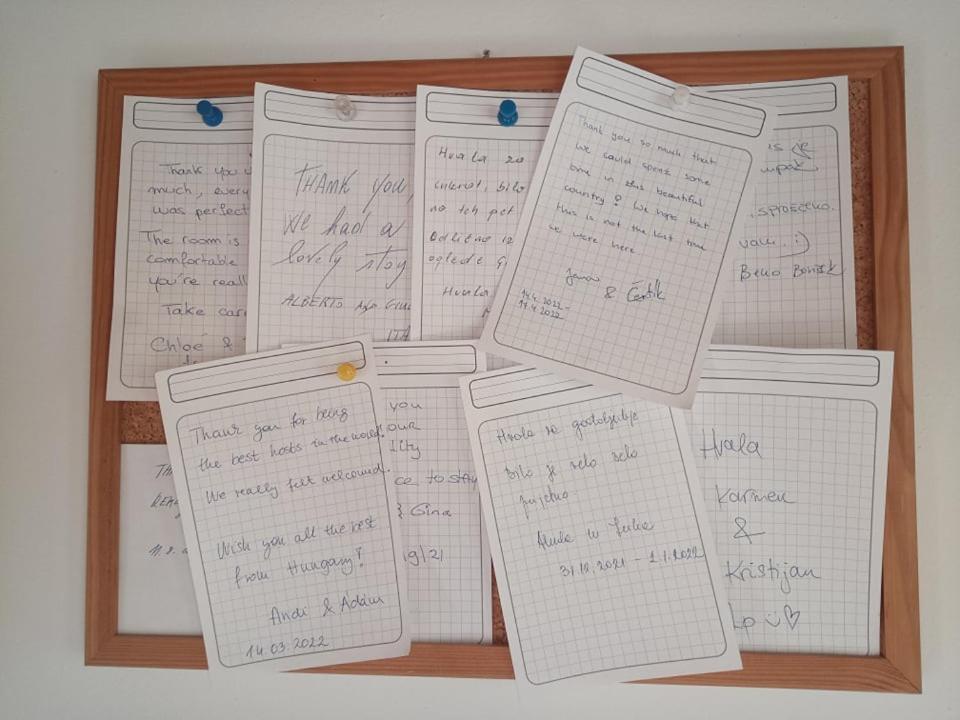 Thank you
much, every
was perfect
The room is
comfortable
you're reall
Take car
Chloé &
THANK YOU,
We had a
lovely stay
ALBERTO
ITA
Hvala za
internet, bilo
Odlično iz
oglede
Hvala
Thank you so much that
we could spent some
time in this beautiful
country! We hope that
this is not the last time
we were here
& Čertík
14.4.2022 -
17.4.2022
sproščeno.
:)
Thank you for being
the best hosts in the world!
We really felt welcomed.
Wish you all the best
from Hungary!
Andi & Ádám
14.03.2022
you
OUR
ILITY
ce to stay
& Gina
19/21
Hvala za gostoljubje
Bilo je zelo zelo
prijetno.
31.10.2021 - 1.1.2022
Hvala
Karmen
&
Kristijan
Lp